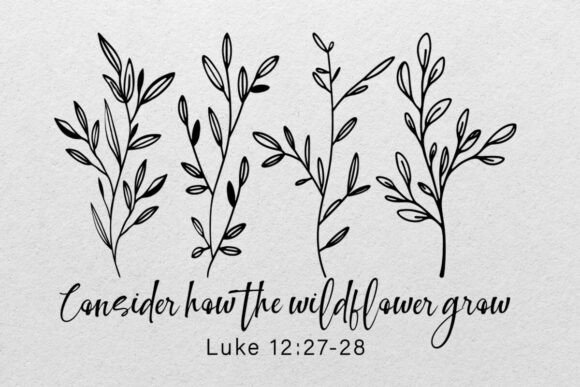 Consider how the wildflower grow
Luke 12:27-28